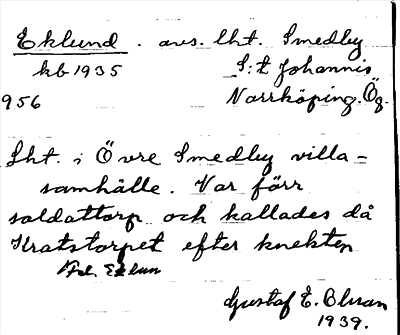 Eklund . avs. lht. Smedby
kb 1935 S:t Johannis
956 Norrköping. Ög.
Lht. i Övre Smedby villa-
samhälle. Var förr
soldattorp och kallades då
Kratstorpet efter knekten
Eklun
Gustaf E. Olsson
1939.